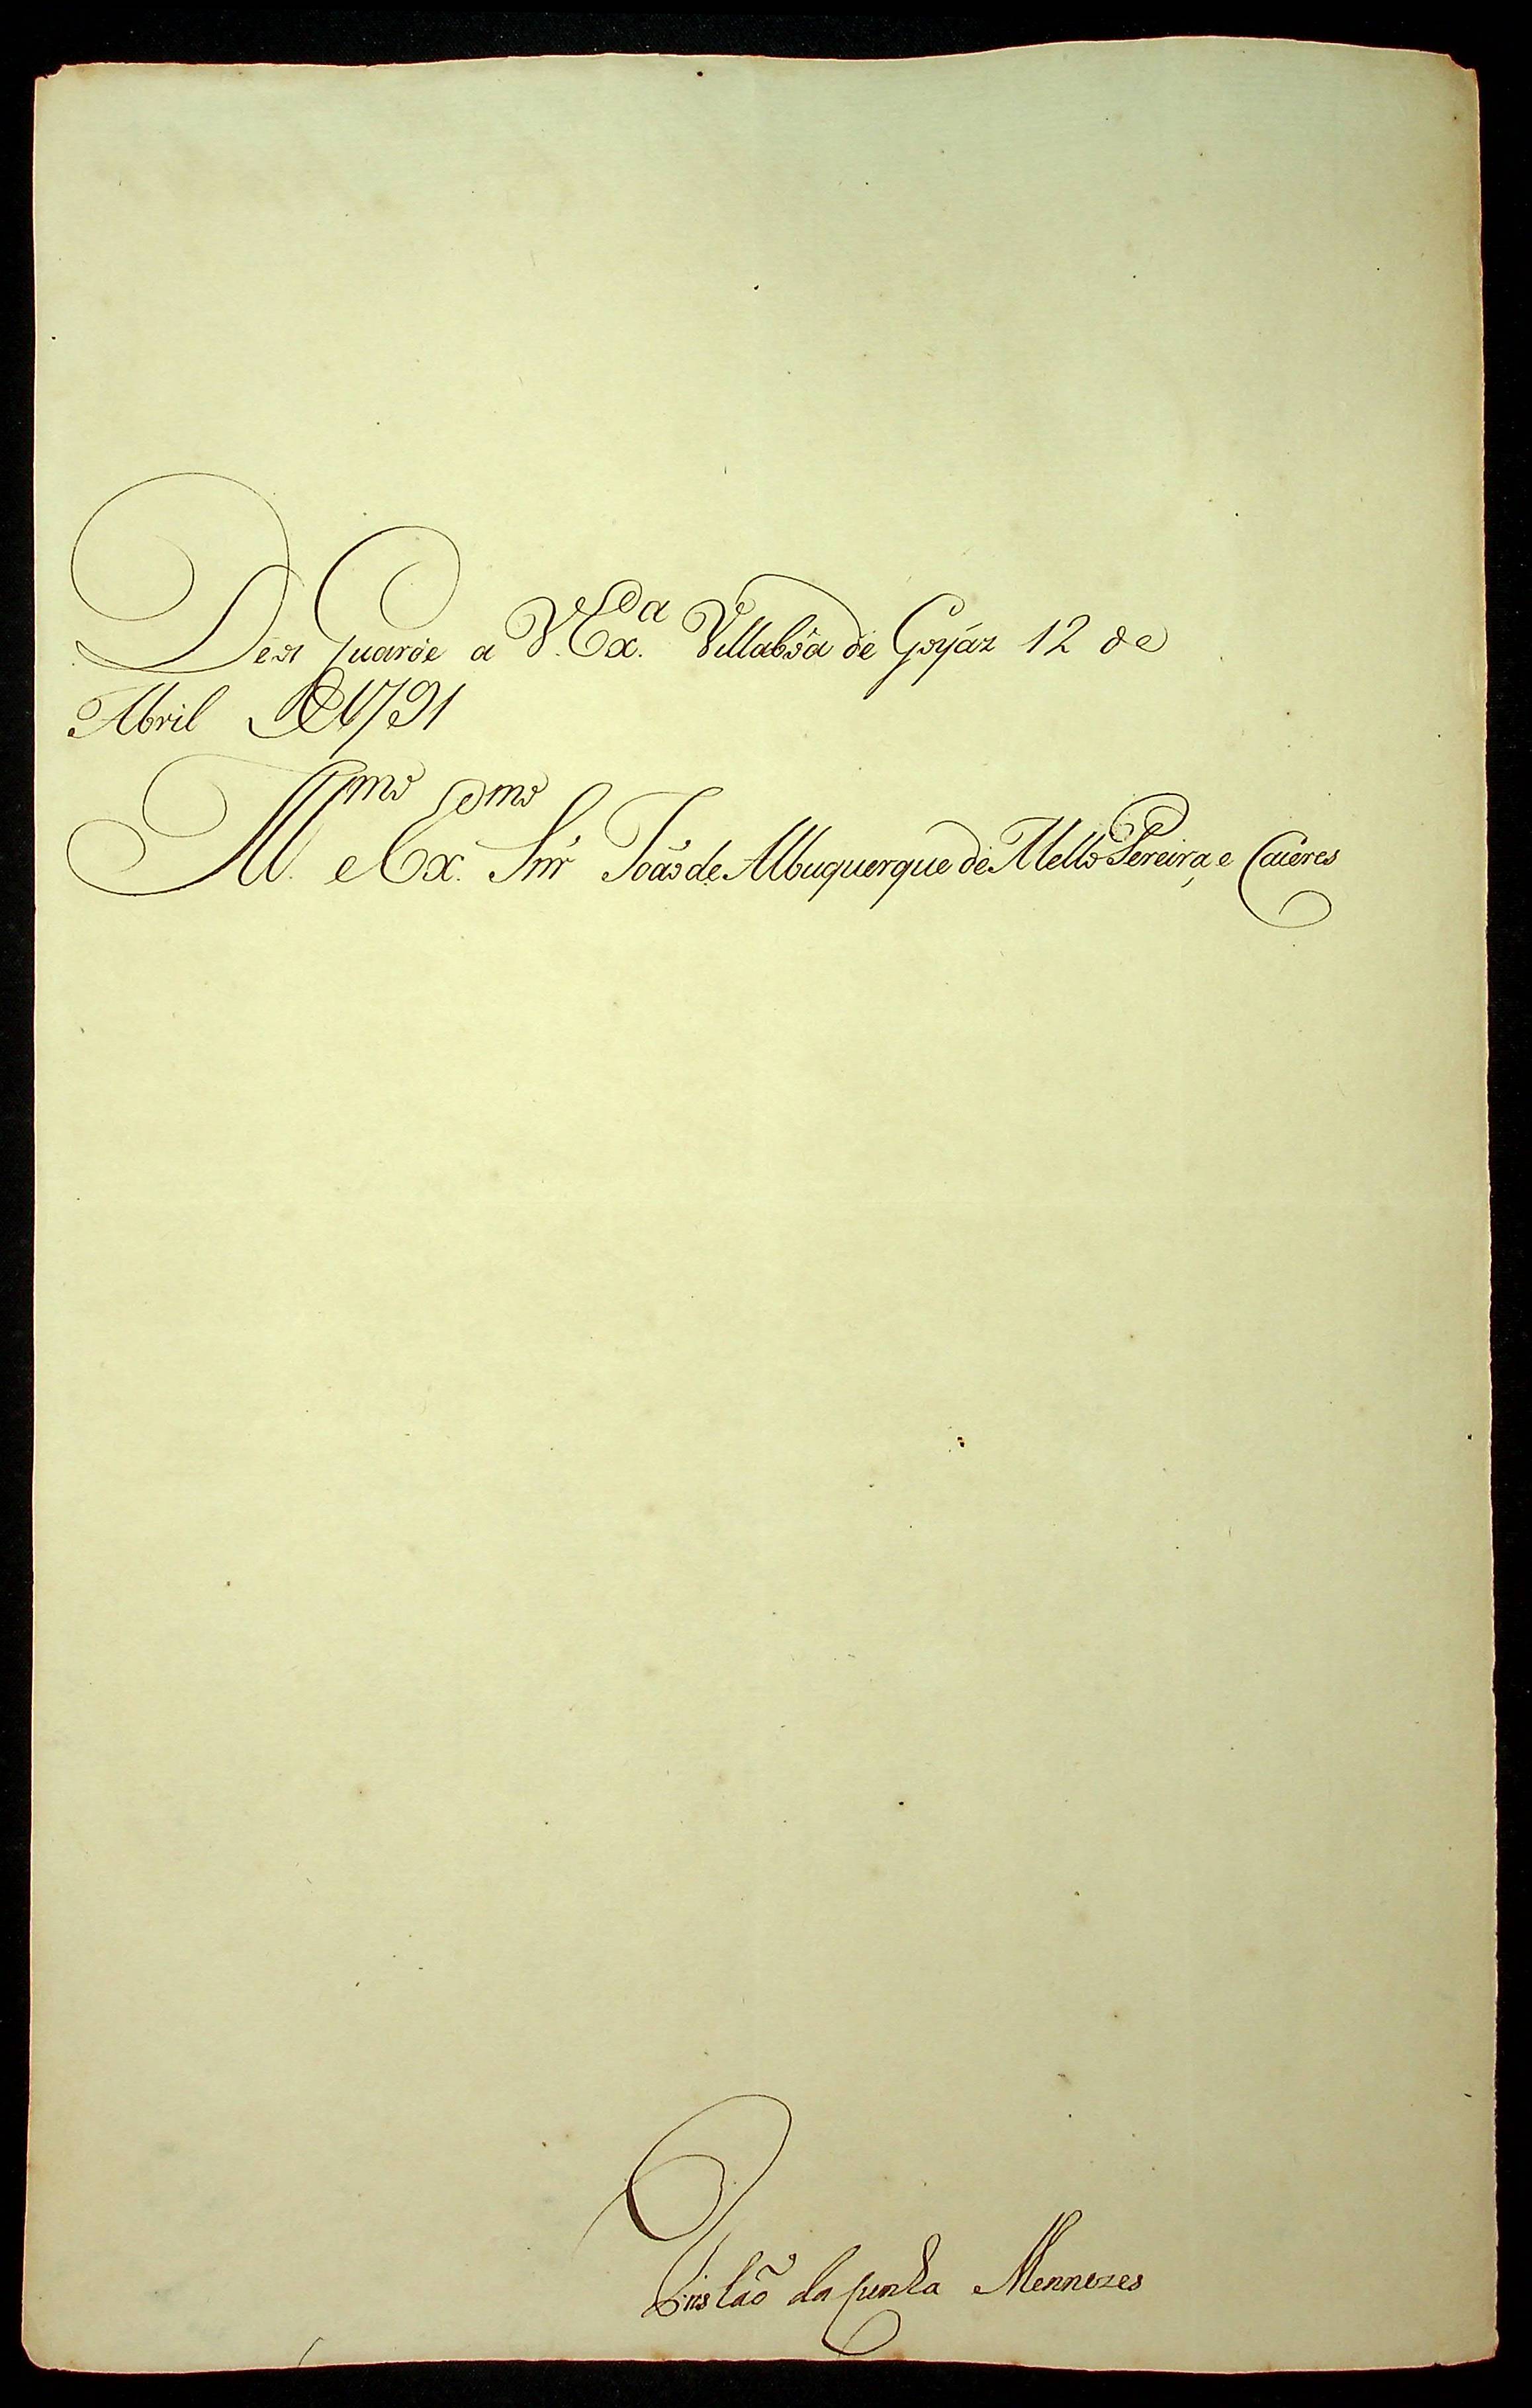 Deos Guarde a V. Ex.ª Villabôa de Goyáz 12 de
Abril de 1791
Ill.mo e Ex.mo Snr João de Albuquerque de Mello Pereira, e Caceres
Tristão da Cunha Mennezes